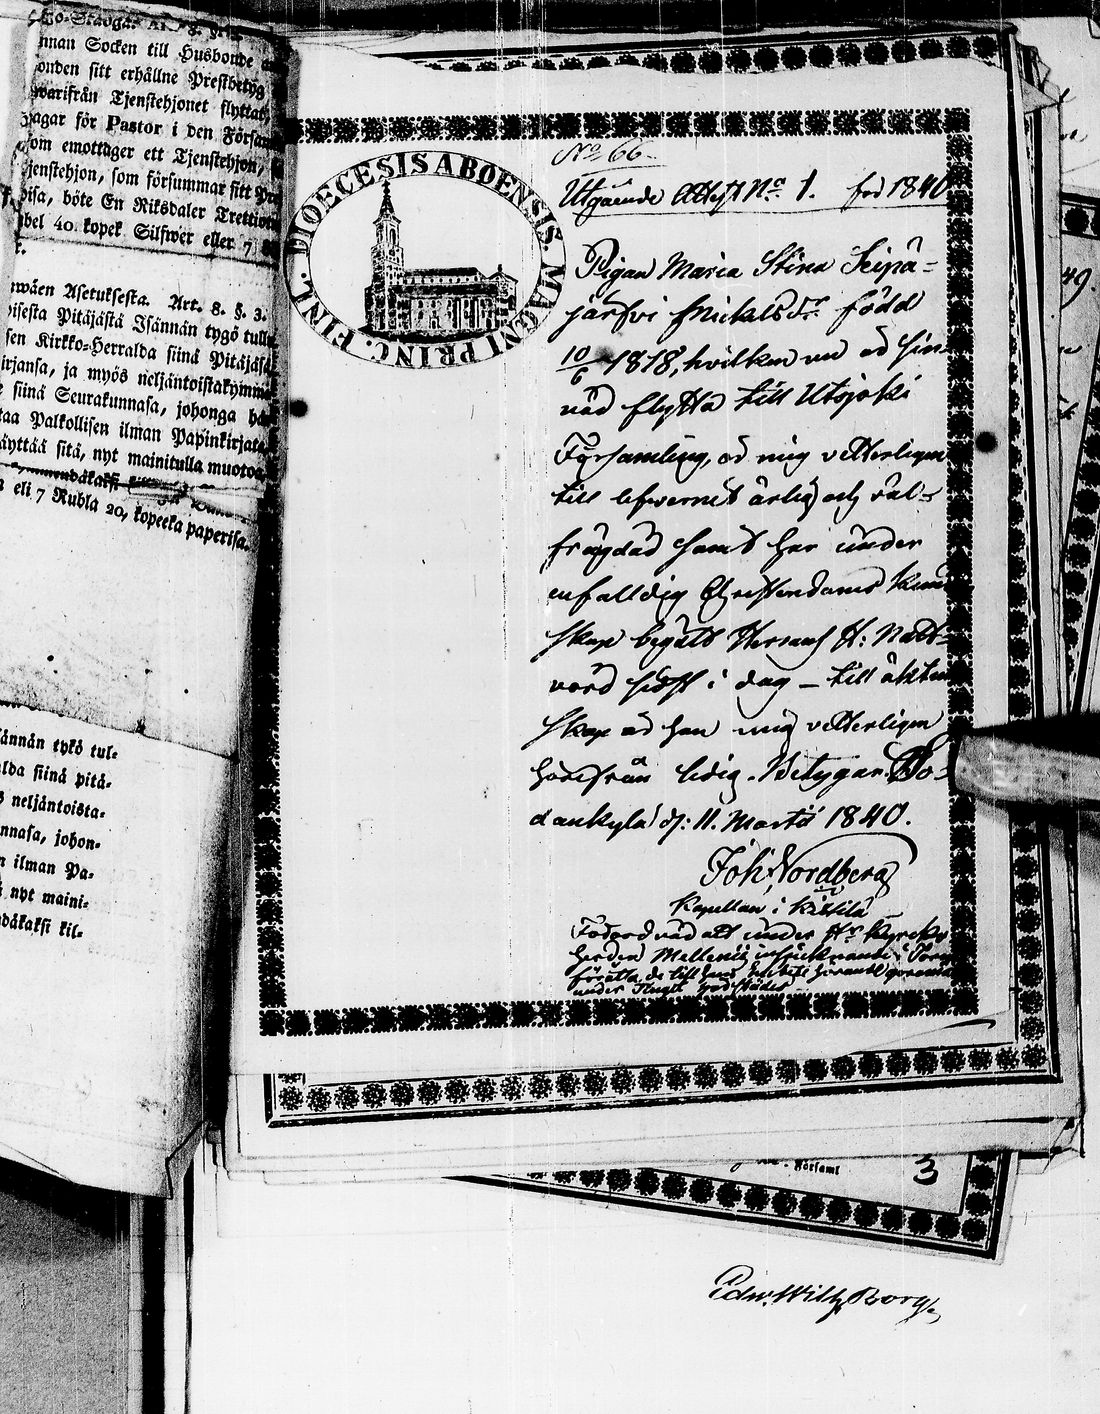 nnan Socken till Husbonde
onden sitt erhållne Prestbetyg
warifrån Tjenstehjonet flyttat,
agar för Pastor i den Försam
om emottager ett Tjenstehjon,
jenstehjon, som försummar sitt Pre
öte En Riksdaler Trettio
bel 40. kopek Silfwer eller 7
wäen Asetuksesta. Art. 8. §. 3.
isesta Pitäjästä Isännän tygö tulla
sen Kirkko-Herralda siinä Pitäjäsä
irjansa, ja myös neljäntoistakymme
siinä Seurakunnasa, johonga hä
taa Palkollisen ilman Papinkirjata
äyttää sitä, nyt mainitulla muotoa
eli 7 Rubla 20, kopeeka paperisa.
ännän tykö tul-
alda siinä pitä-
neljäntoista-
nnasa, johon-
n ilman Pa-
nyt maini-
däkaksi kil-
DIOECESIS ABOENSIS. MAGNI PRINC. FINL.
No 66.
Utgående Attest No 1. för 1840
Pigan Maria Stina Seipä-
järfvi Mickelsdr. född
10/6 1818, hvilken nu är sin-
nad flytta till Utsjoki
Församling, är mig vetterligen
till lefvernet ärlig och väl-
frägdad samt har under
enfalldig Christendoms kun
skap begått Herrans H: Natt-
vard sidst i dag – till äkten
skap är hon mig vetterligen
härifrån ledig. Betygar. So-
dankylä d: 11. Martii 1840.
Joh. Nordberg
Kapellan i Kittilä
under Hr Kyrko
herden Mellenii
3
Edw. Wilh. Borg